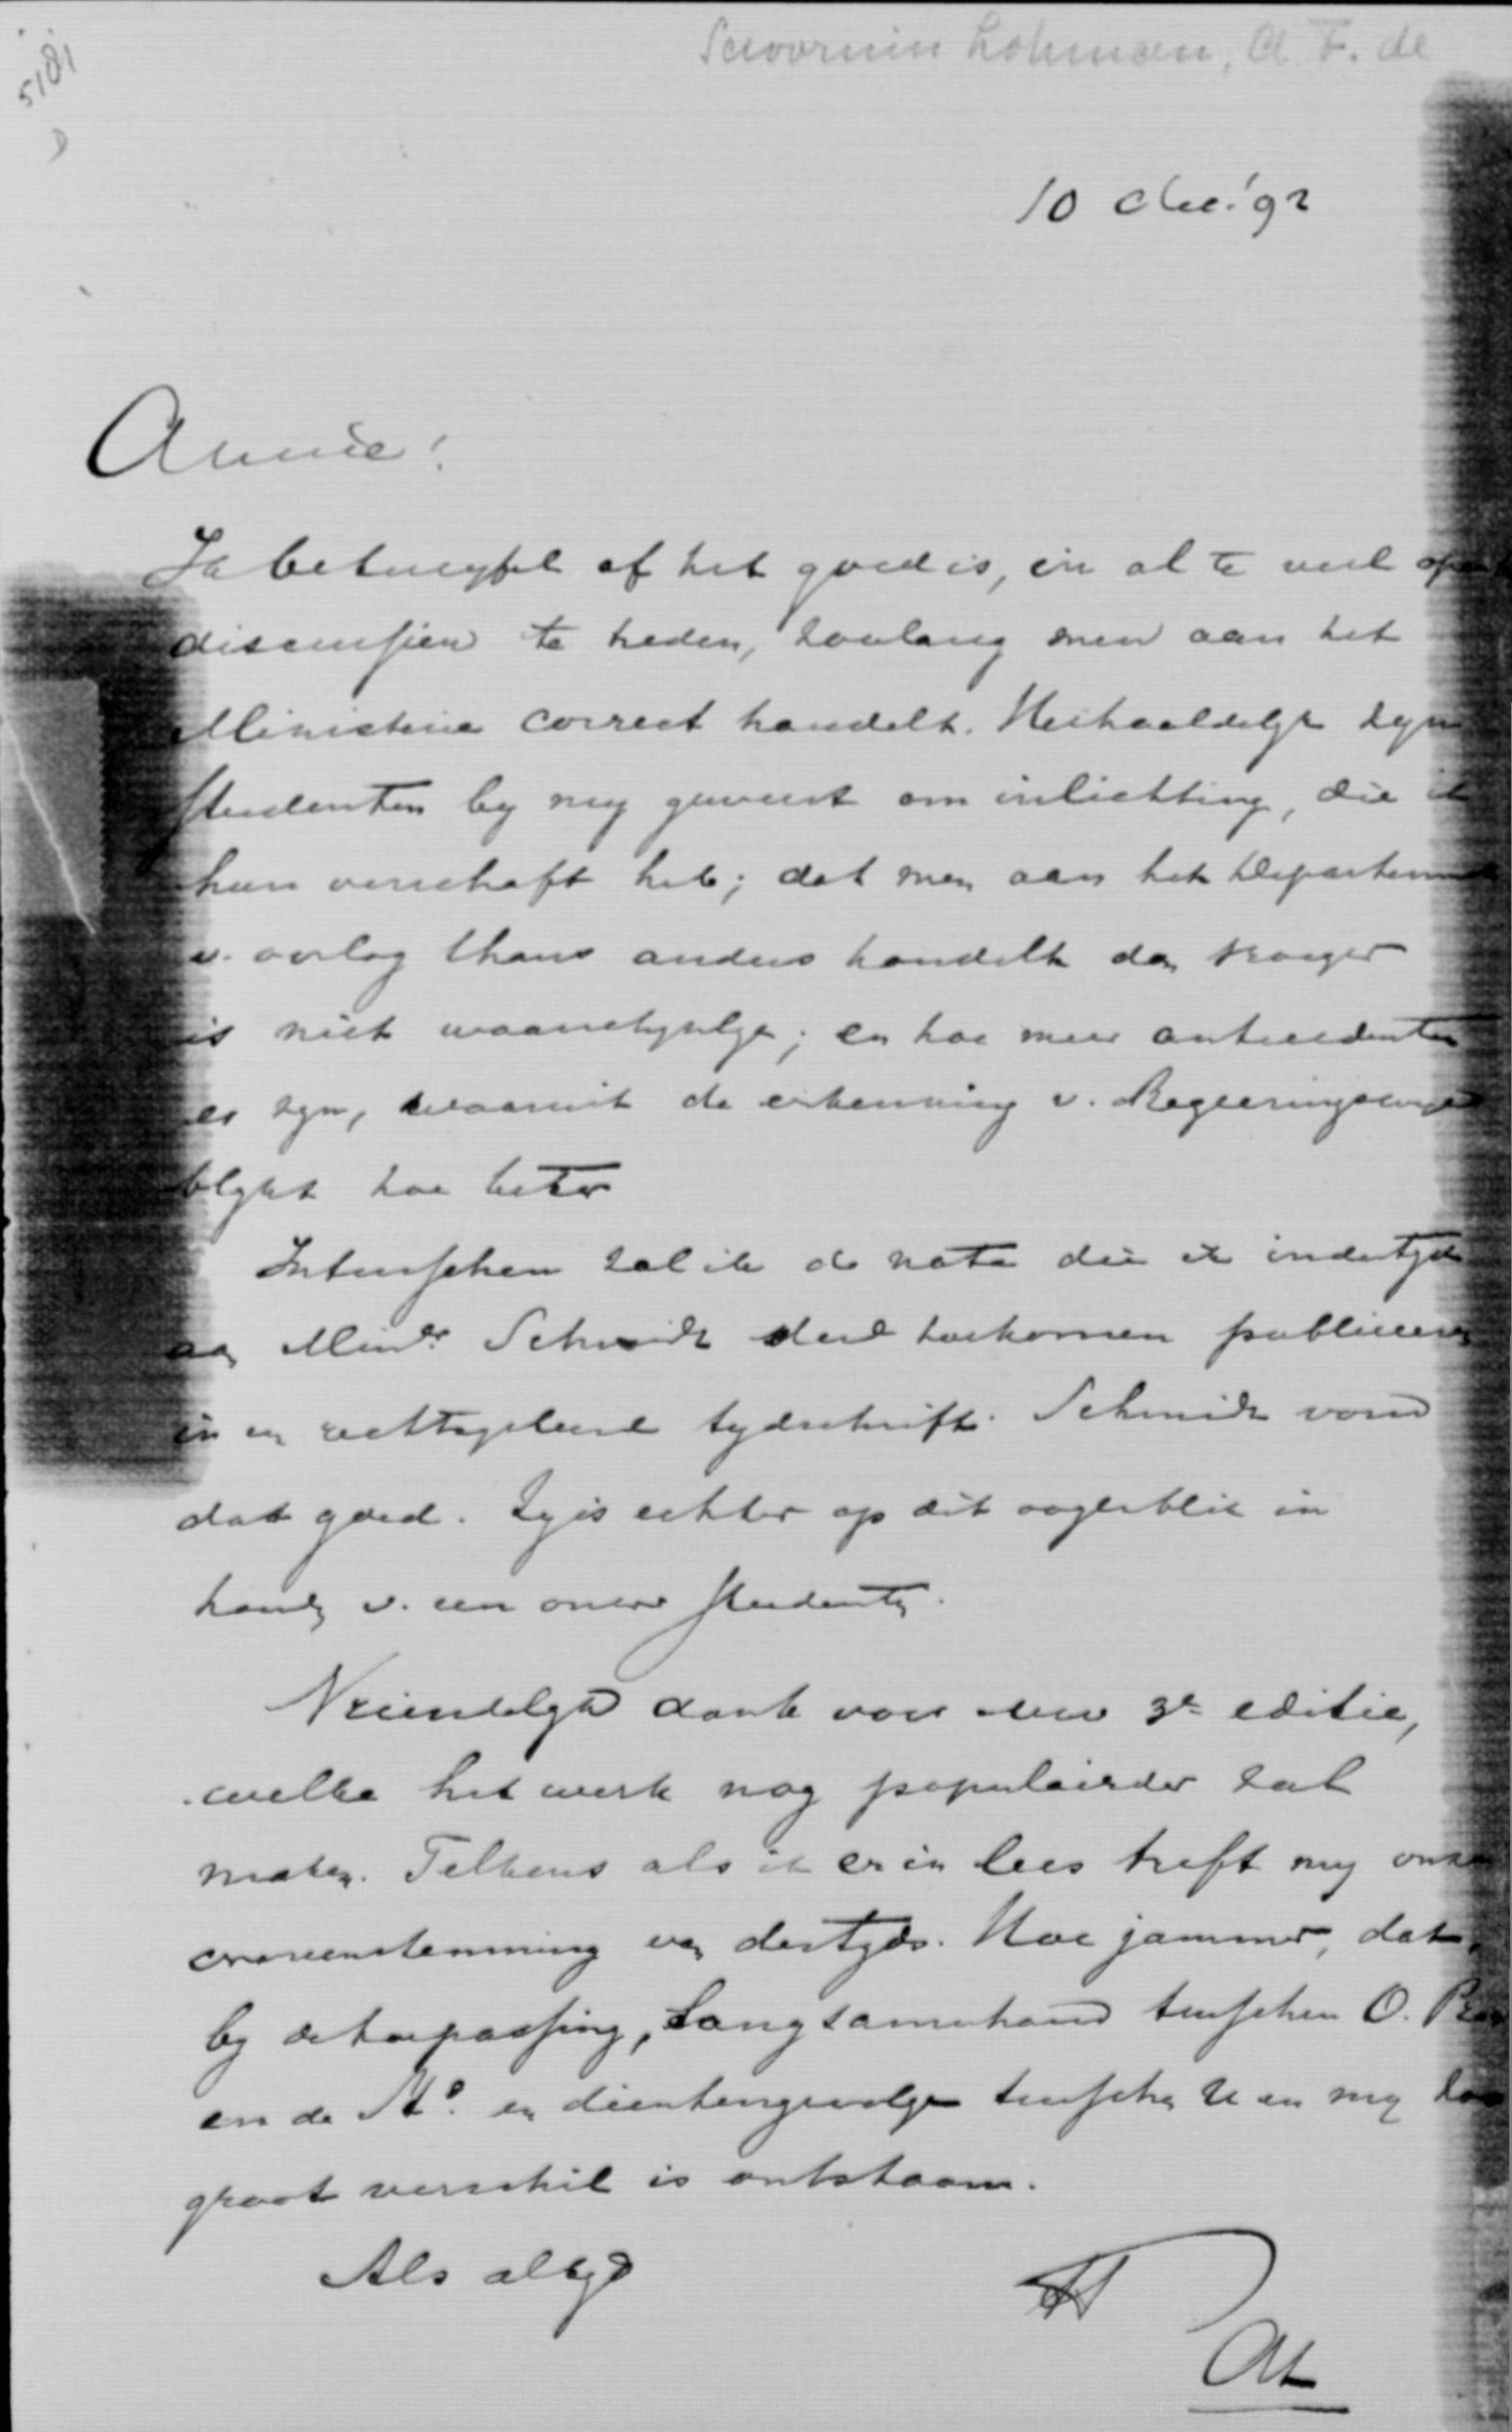 Savornin Lohman, A. F. de
5181
10 Dec. '92
Amice!
Ik betwyfel of het goed is, in al te veel
discussien te treden, zoolang men aan het
Ministerie correct handelt. Herhaaldelyk zyn
studenten by my geweest om inlichting, die ik
hun verschaft heb; dat men aan het Departement
v. oorlog thans anders handelt dan vroeger
is niet waarschynlyk; en hoe meer antecedenten
er zyn, waaruit de erkenning v. Regeeringswege
blykt hoe beter
Intusschen zal ik de nota die ik indertyd
aan Minr. Schmidt deed toekomen publiceeren
in een rechtsgeleerd tydschrift. Schmidt vond
dat goed. Zy is echter op dit oogenblik in
handen v. een onzer studenten.
Vriendelyk dank voor uw 3e editie,
welke het werk nog populairder zal
maken. Telkens als ik er in lees treft my onze
overeenstemming van destyds. Hoe jammer, dat
by de toepassing, langzamerhand tusschen O. Pr
en de St. en dientengevolge tusschen U en my zoo
groot verschil is ontstaan.
Als altyd
tt
AL